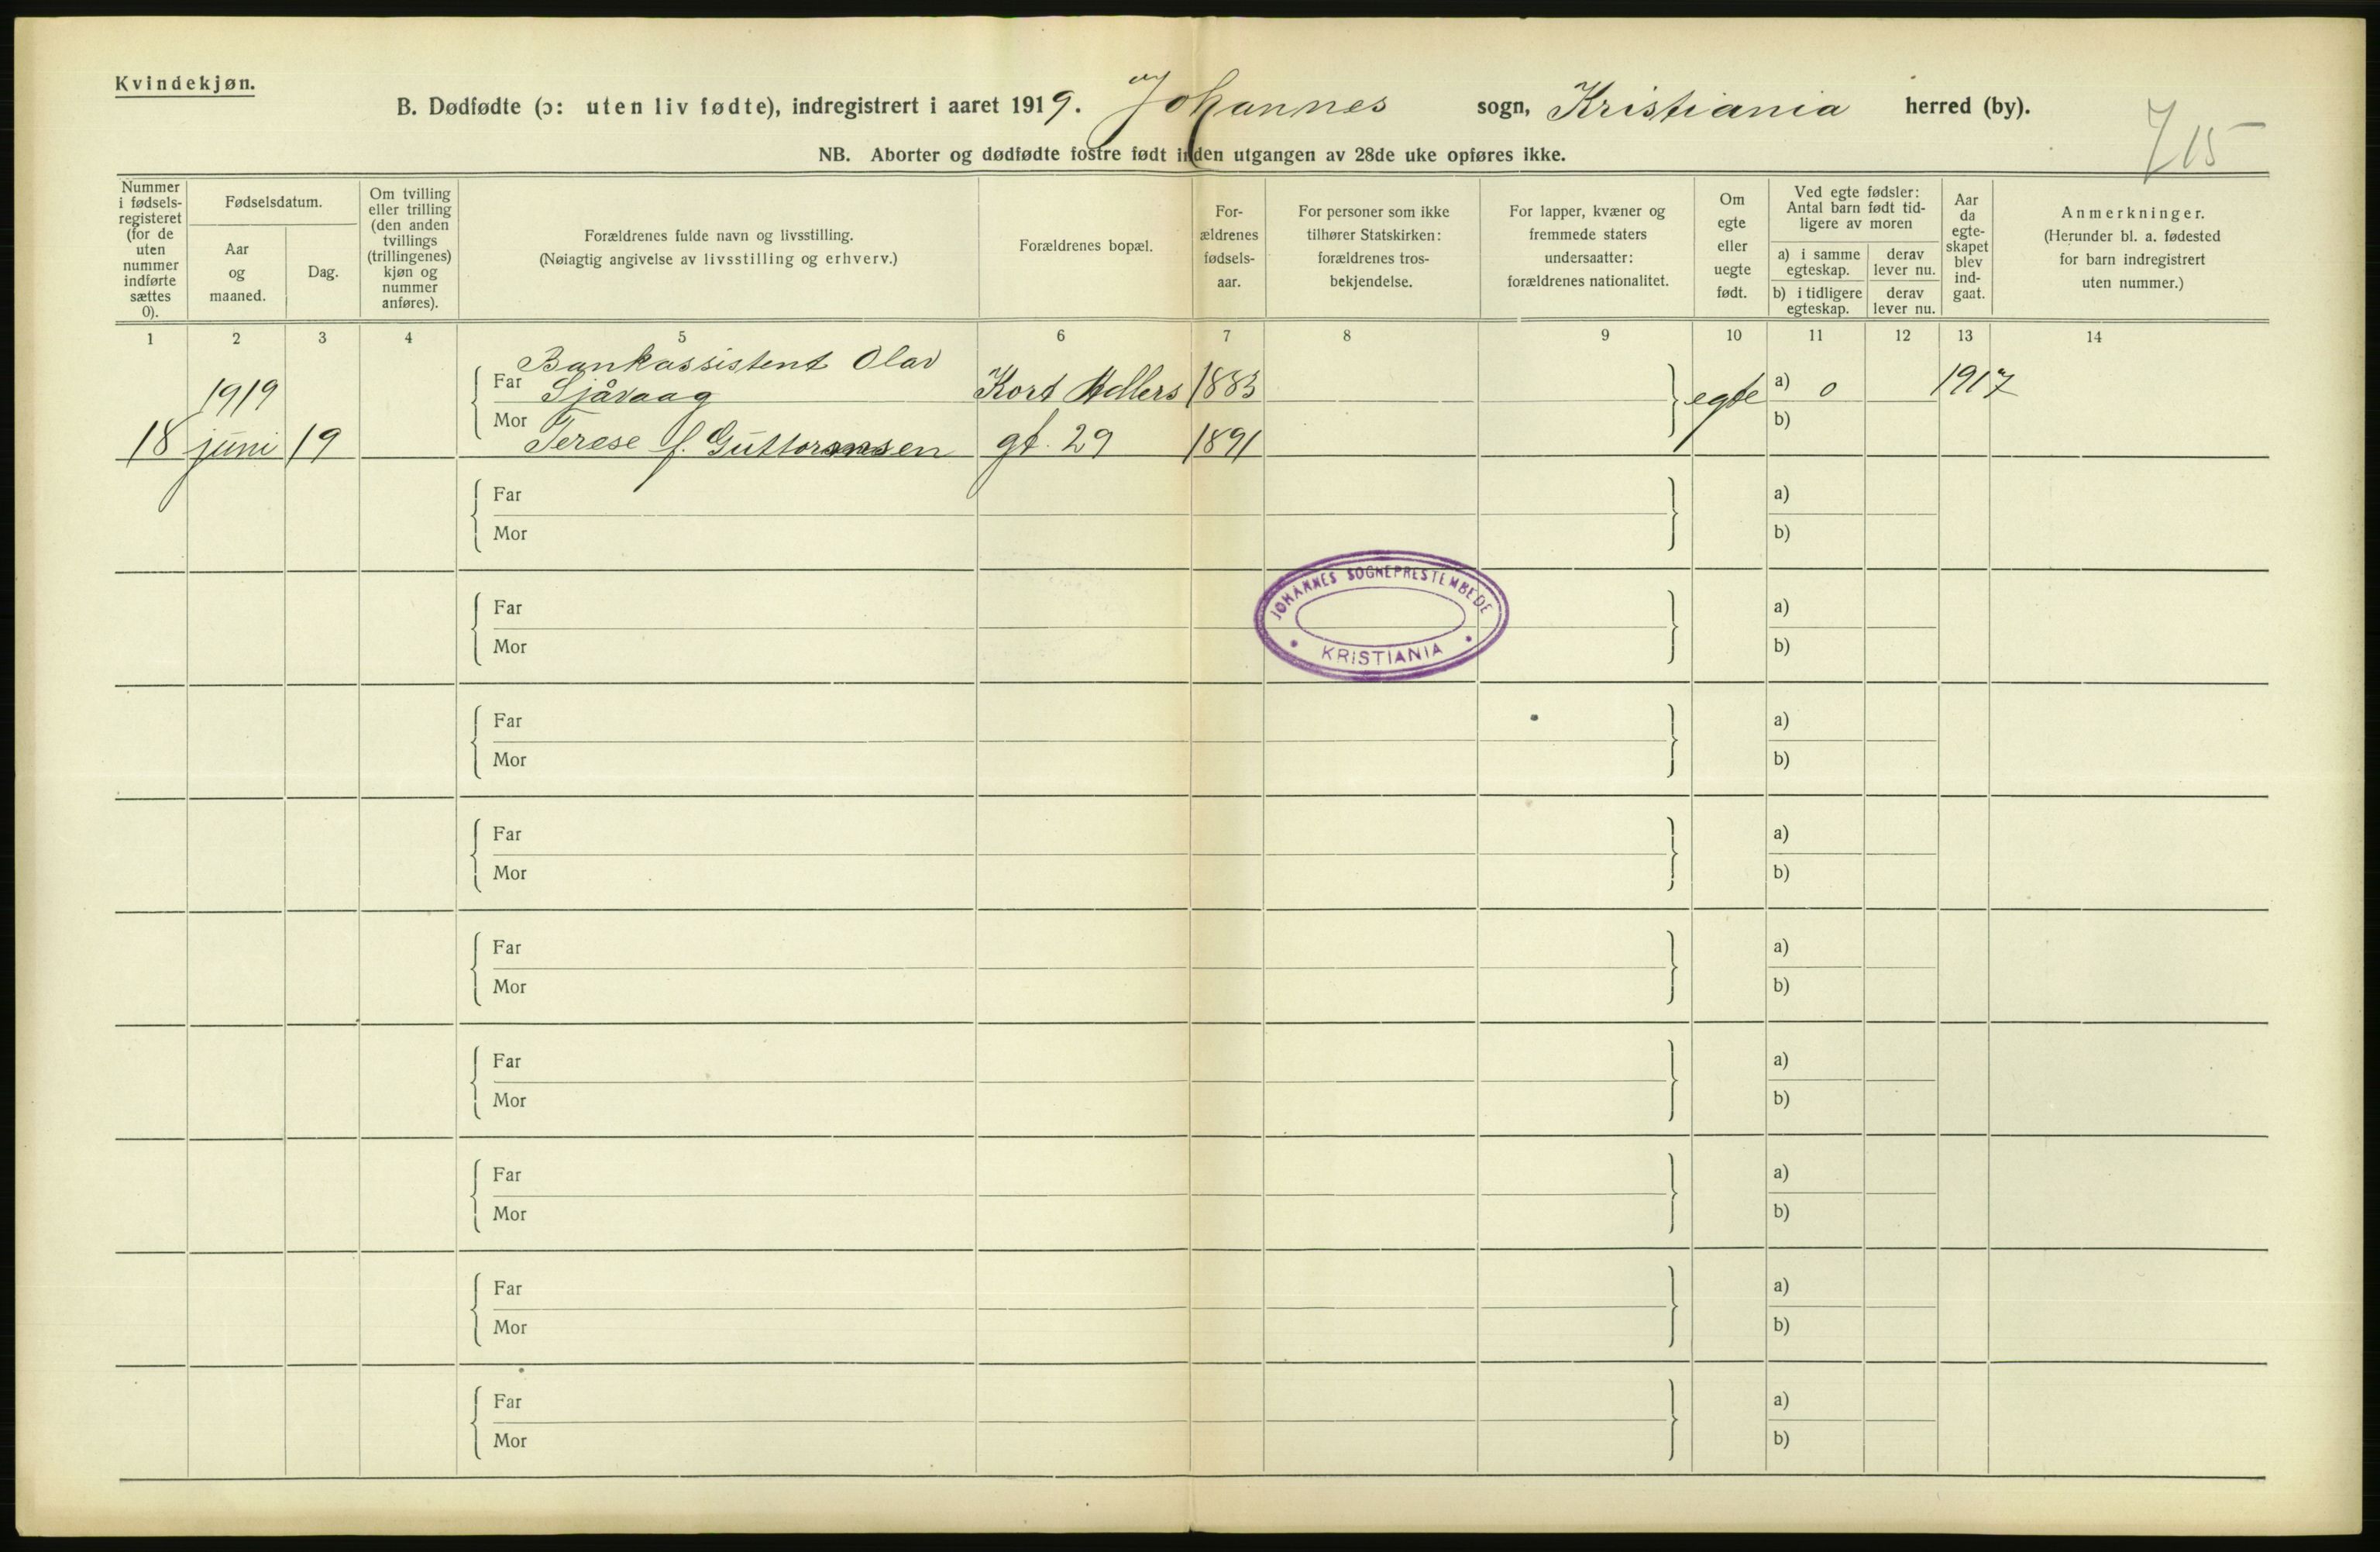 Kvindekjøn.
B. Dødfødte (ɔ: uten liv fødte), indregistrert i aaret 1919. Johannes sogn, Kristiania herred (by).
715
NB. Aborter og dødfødte fostre født inden utgangen av 28de uke opføres ikke.
Nummer
i fødsels-
registeret
(for de
uten
nummer
indførte
sættes
0).
Fødselsdatum.
Aar
og
maaned.
Dag.
Om tvilling
eller trilling
(den anden
tvillings
(trillingenes)
kjøn og
nummer
anføres).
Forældrenes fulde navn og livsstilling.
(Nøiagtig angivelse av livsstilling og erhverv.)
Forældrenes bopæl.
For-
ældrenes
fødsels-
aar.
For personer som ikke
tilhører Statskirken:
forældrenes tros-
bekjendelse.
For lapper, kvæner og
fremmede staters
undersaatter:
forældrenes nationalitet.
Om
egte
eller
uegte
født.
Ved egte fødsler:
Antal barn født tid-
ligere av moren
a) i samme
egteskap.
derav
lever nu.
b) i tidligere
egteskap.
derav
lever nu.
Aar
da
egte-
skapet
blev
ind-
gaat.
Anmerkninger.
(Herunder bl. a. fødested
for barn indregistrert
uten nummer.)
1 2 3 4 5 6 7 8 9 10 11 12 13 14
Bankassistent Olav
1919 Far Sjåvaag Kort Adlers 1883 egte a) 0 1917
Mor b)
18 juni 19 Terese f. Guttormsen gt. 29 1891
Far a)
Mor b)
JOHANNES SOGNEPRESTEMBEDE
KRISTIANIA
Far a)
Mor b)
Far a)
Mor b)
Far a)
Mor b)
Far a)
Mor b)
Far a)
Mor b)
Far a)
Mor b)
Far a)
Mor b)
Far a)
Mor b)